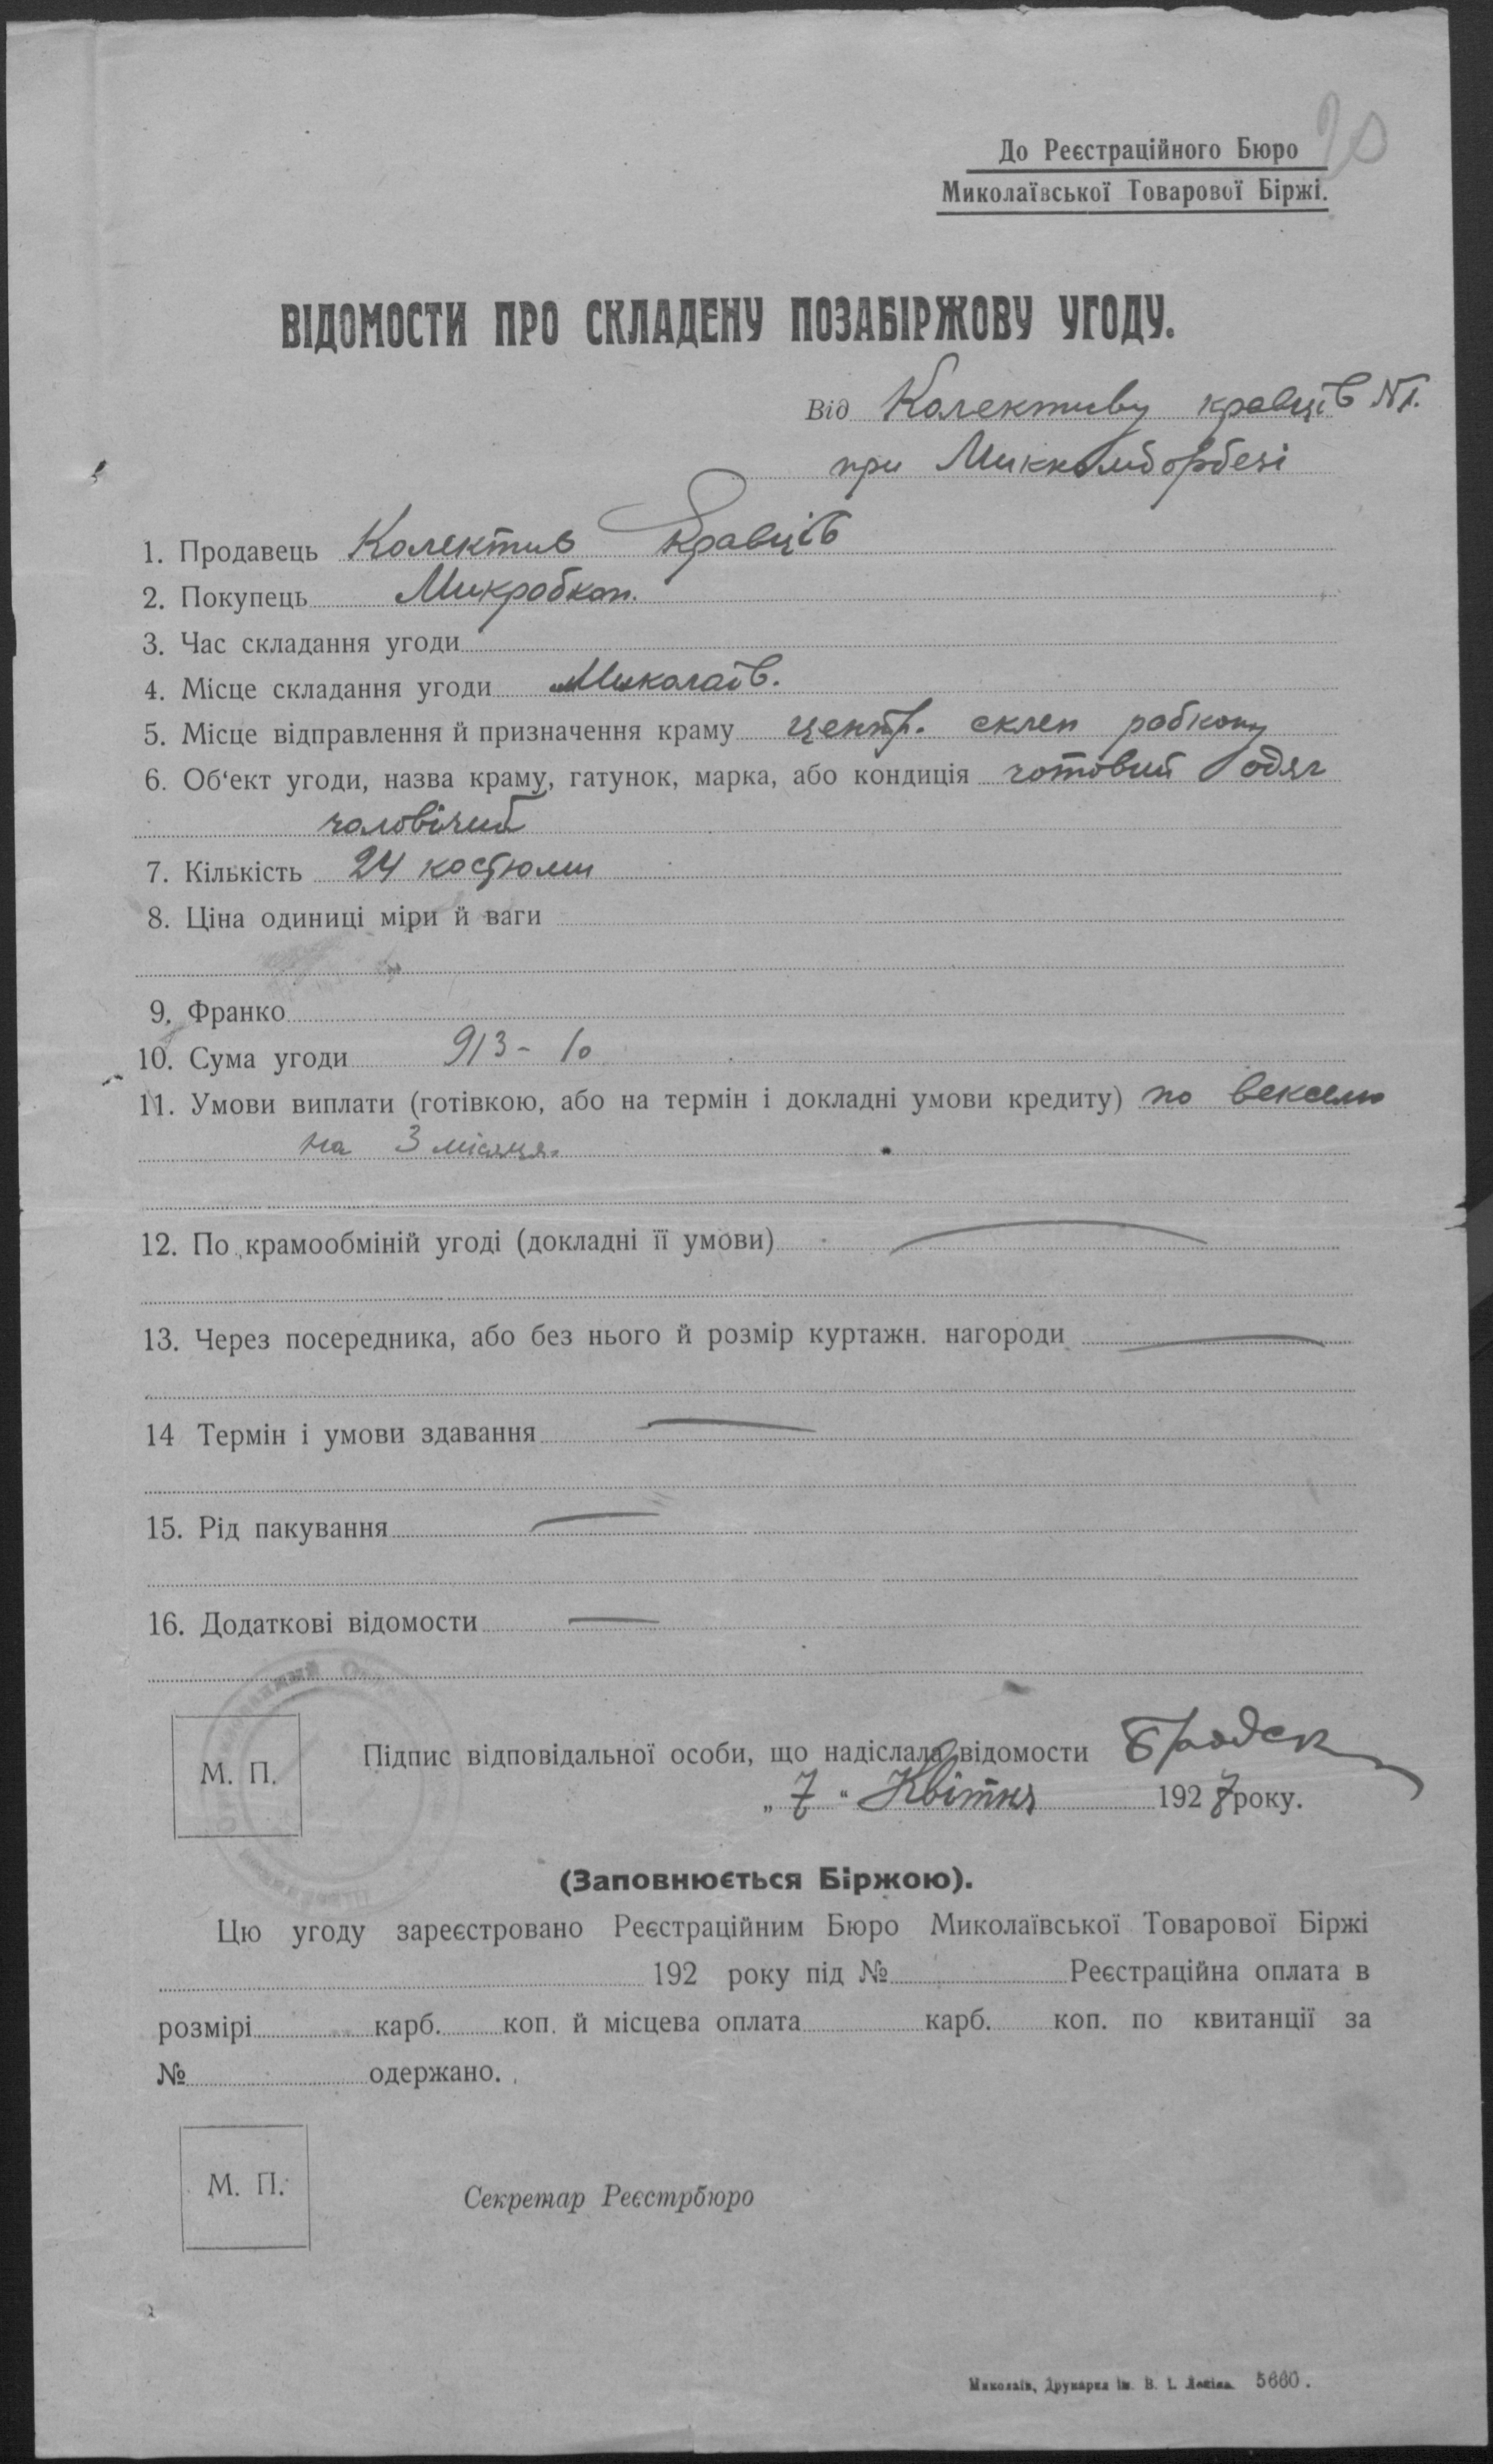 20
До Реєстраційного Бюро
Миколаївської Товарової Біржі.
ВІДОМОСТИ ПРО СКЛАДЕНУ ПОЗАБІРЖОВУ УГОДУ.
Від Колективу кравців №1.
при Миккомборбезі
1. Продавець Колектив кравців
2. Покупець Микробкоп.
3. Час складання угоди
4. Місце складання угоди Миколаїв.
5. Місце відправлення й призначення краму центр. склеп робкопу
6. Об'єкт угоди, назва краму, гатунок, марка, або кондиція готовий одяг
чоловічий
7. Кількість 24 костюми
8. Ціна одиниці міри й ваги
9. Франко
10. Сума угоди 913 - 10
11. Умови виплати (готівкою, або на термін і докладні умови кредиту) по векселю
на 3 місяця.
12. По крамообміній угоді (докладні її умови)
13. Через посередника, або без нього й розмір куртажн. нагороди
14 Термін і умови здавання
15. Рід пакування
16. Додаткові відомости
М. П.
Підпис відповідальної особи, що надіслала відомости
„ 7 " Квітня 1927 року.
(Заповнюється Біржою).
Цю угоду зареєстровано Реєстраційним Бюро Миколаївської Товарової Біржі
192 року під № Реєстраційна оплата в
розмірі карб. коп. й місцева оплата карб. коп. по квитанції за
№ одержано.
М. П.
Секретар Реєстрбюро
Миколаїв, Друкарня ім. В. І. Леніна. 5660.